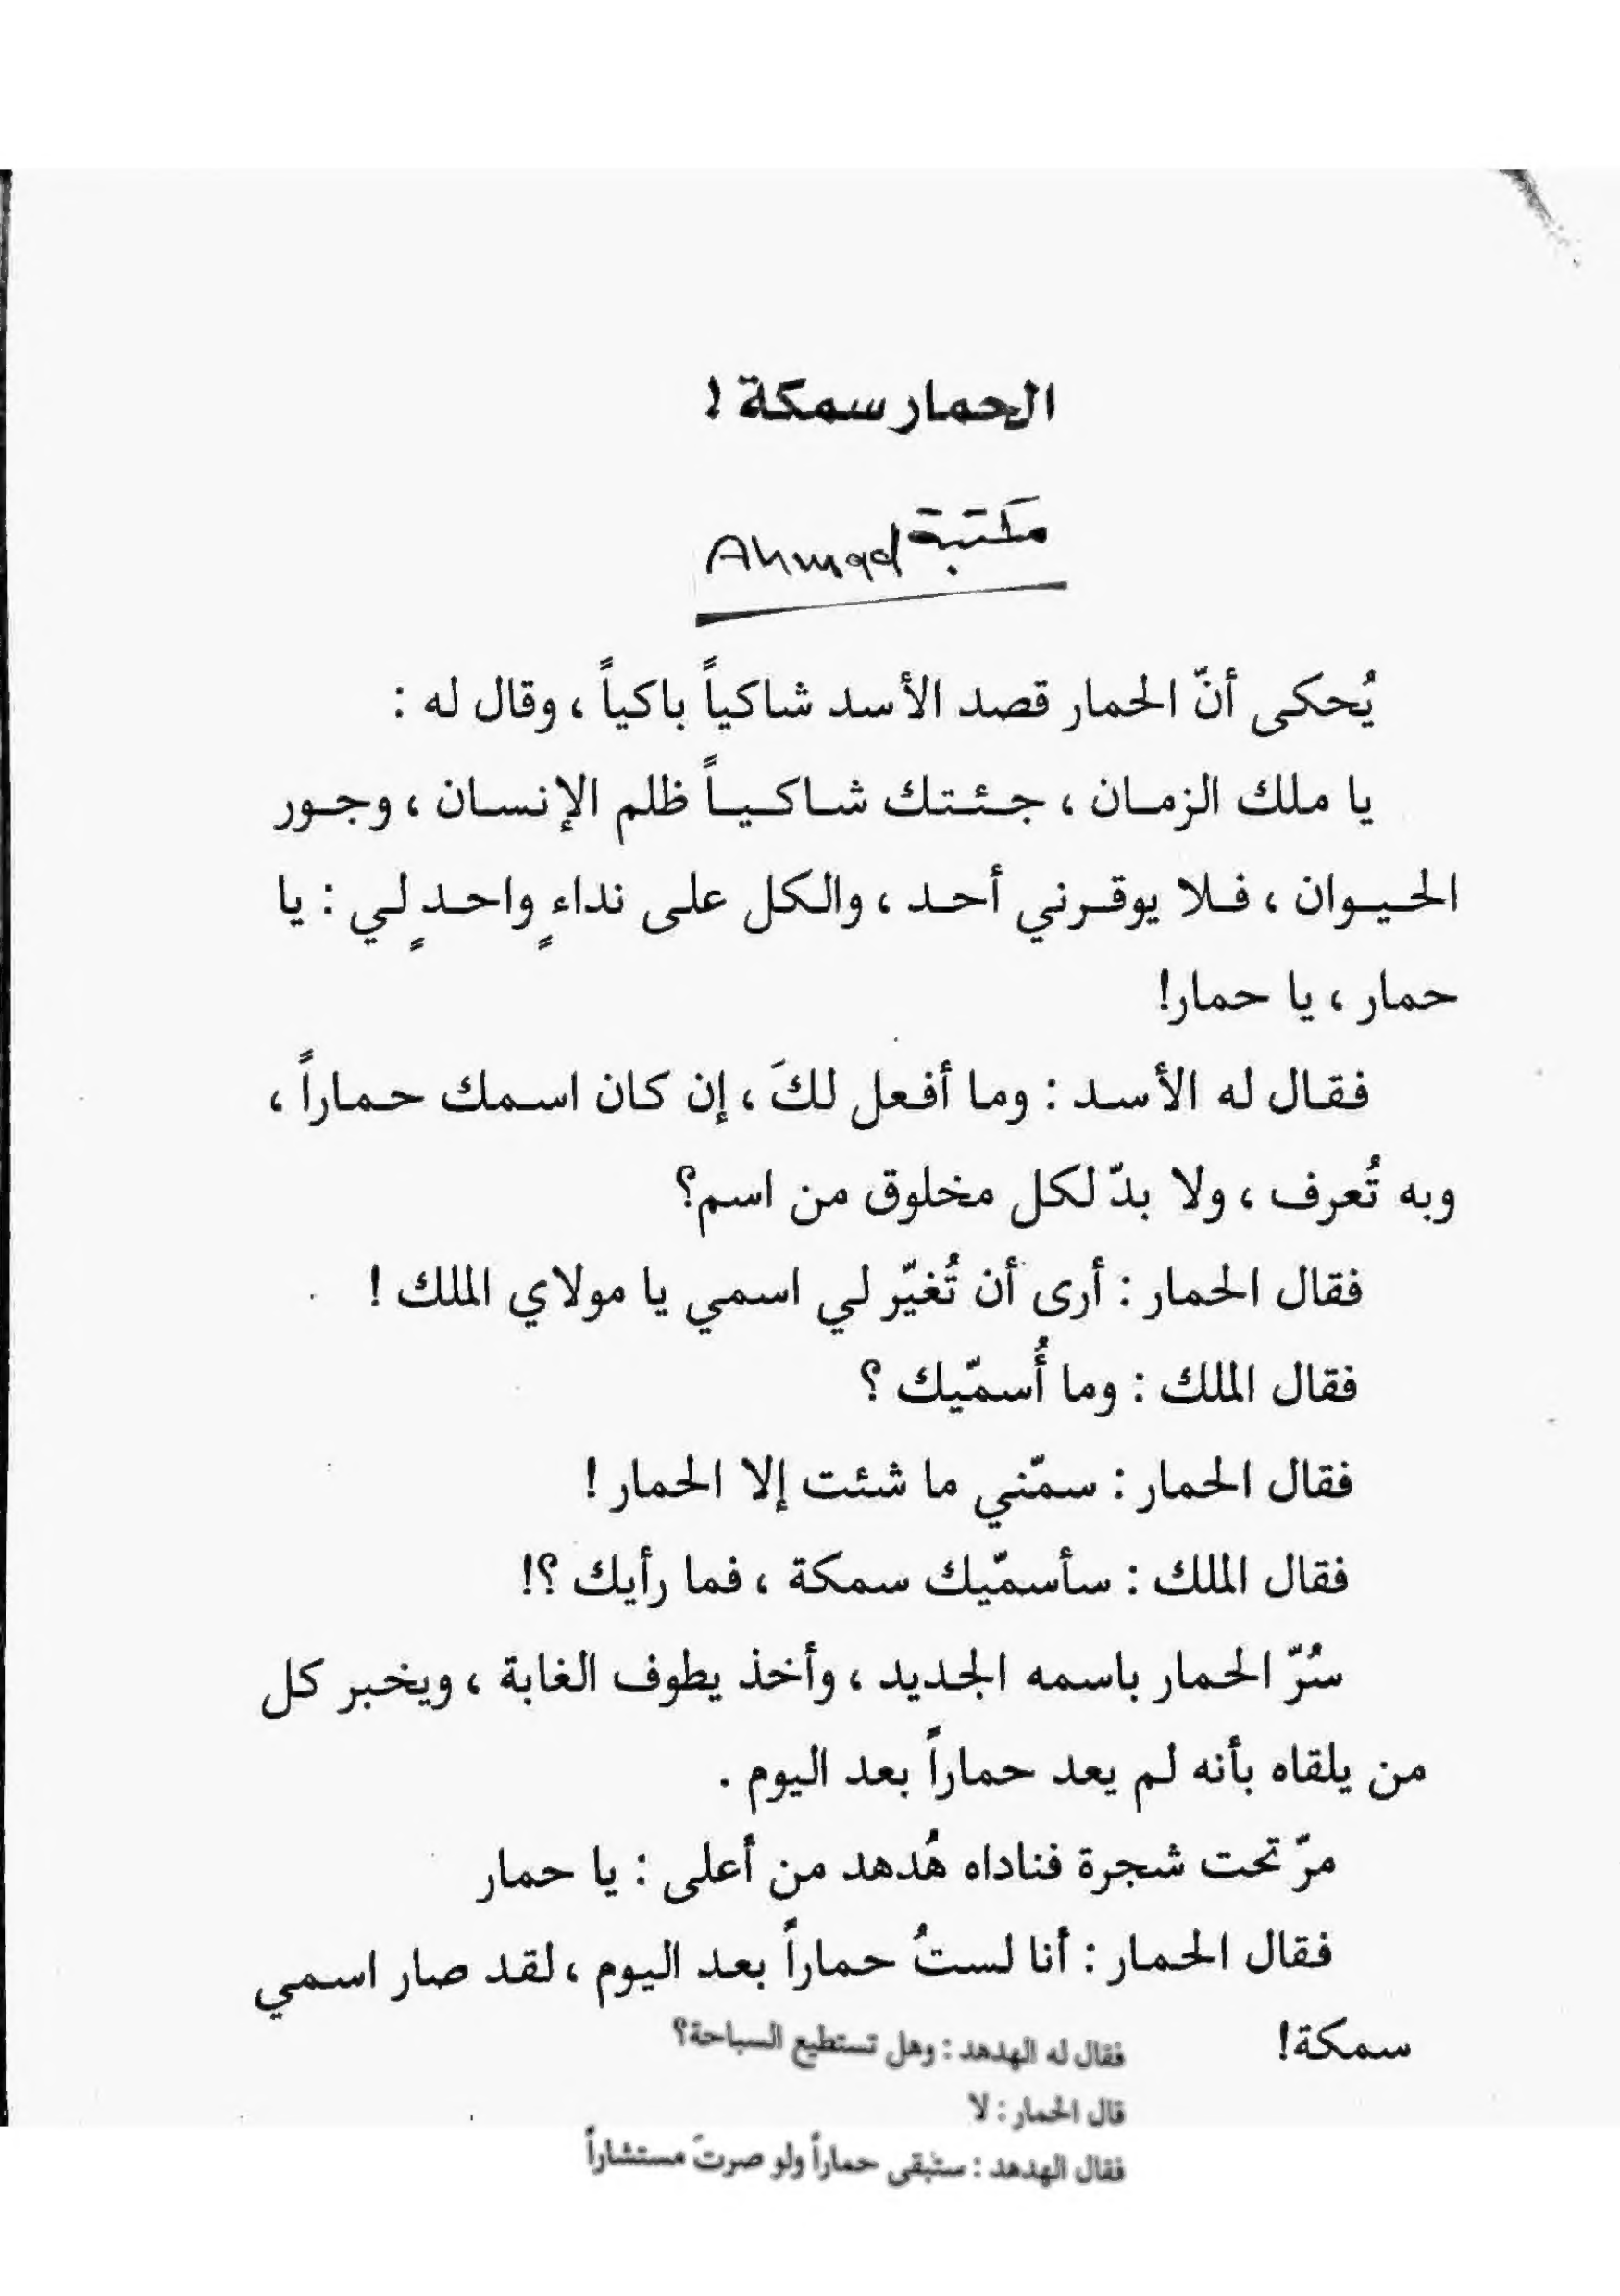 الحمار سمكة !
مكتبة Ahmad
يُحكى أنّ الحمار قصد الأسد شاكياً باكياً ، وقال له :
يا ملك الزمـان ، جـئـتك شـاكـيـاً ظلم الإنسـان ، وجـور
الحـيـوان ، فـلا يوقـرني أحـد ، والكل على نداءٍ واحـدٍ لـي : يا
حمار ، يا حمار!
فقـال له الأسـد : وما أفـعل لكَ ، إن كان اسـمك حـماراً ،
وبه تُعرف ، ولا بدّ لكل مخلوق من اسم؟
فقال الحمار : أرى أن تُغيّر لي اسمي يا مولاي الملك !
فقال الملك : وما أُسمّيك ؟
فقال الحمار : سمّني ما شئت إلا الحمار !
فقال الملك : سأسمّيك سمكة ، فما رأيك ؟!
سُرّ الحمار باسمه الجديد ، وأخذ يطوف الغابة ، ويخبر كل
من يلقاه بأنه لم يعد حماراً بعد اليوم .
مرّ تحت شجرة فناداه هُدهد من أعلى : يا حمار
فقال الحمار : أنا لستُ حماراً بعد اليوم ، لقد صار اسمي
سمكة!
فقال له الهدهد : وهل تستطيع السباحة؟
قال الحمار : لا
فقال الهدهد : ستبقى حماراً ولو صرتَ مستشاراً